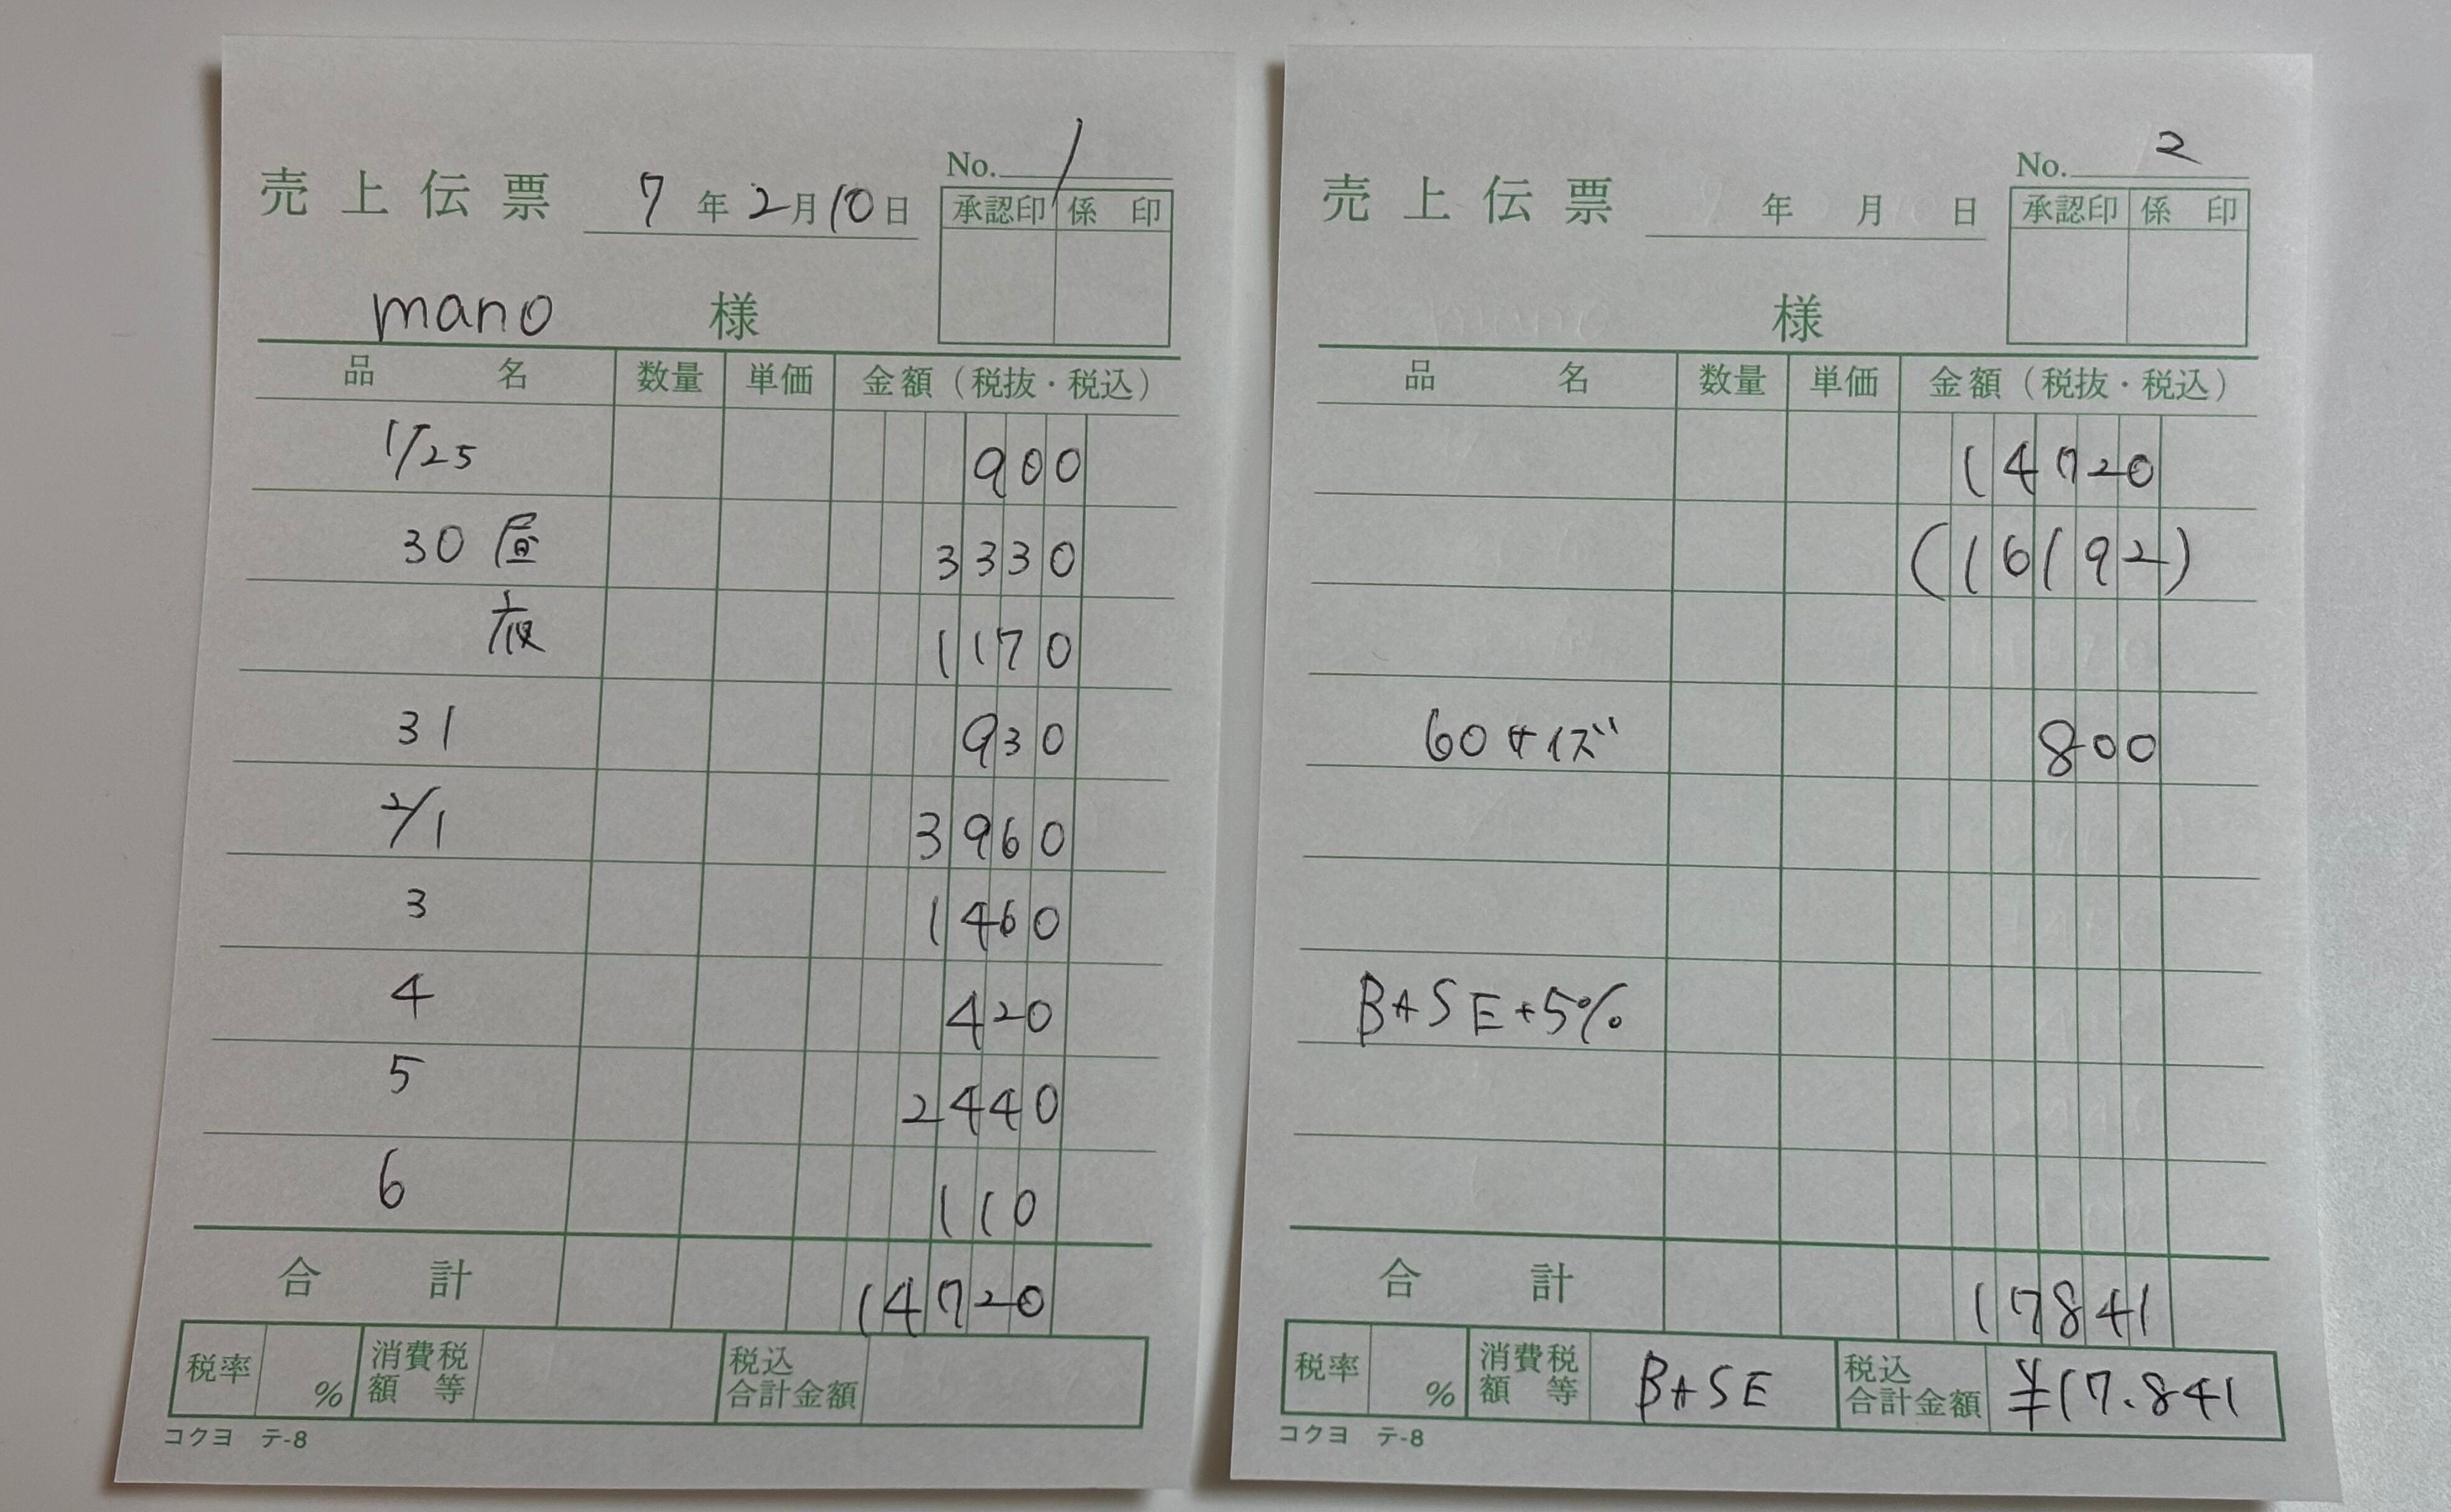 No. 1
売上伝票 7年2月10日
承認印 係印
mano 様
品名 数量 単価 金額（税抜・税込）
1/25 900
30 昼 3330
夜 1170
31 930
2/1 3960
3 1460
4 420
5 2440
6 110
合計 14720
税率 % 消費税額等 税込合計金額
コクヨ テ-8
No. 2
売上伝票 年 月 日
承認印 係印
様
品名 数量 単価 金額（税抜・税込）
14720
(16192)
60サイズ 800
BASE+5%
合計 17841
税率 % 消費税額等 BASE 税込合計金額 ¥17.841
コクヨ テ-8